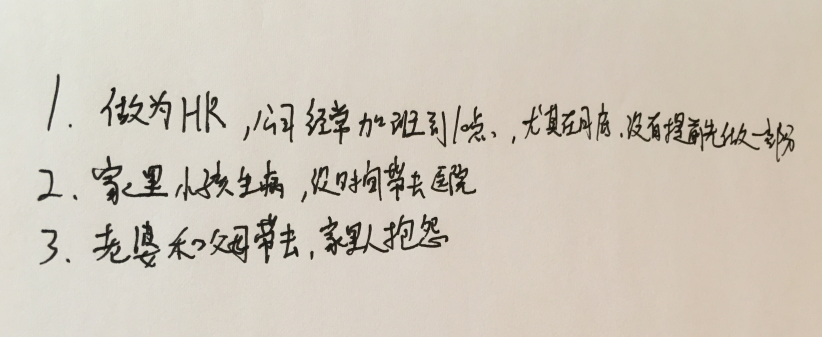 1. 做为HR,公司经常加班到10点、,尤其在月底、没有提前先做一部份
2、家里小孩生病,没时间带去医院
3. 老婆和父母带去,家里人抱怨